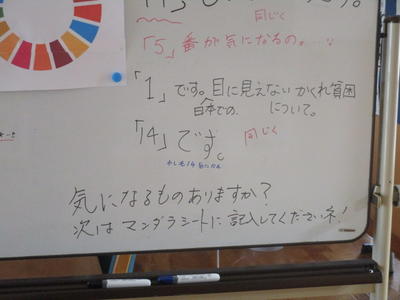 同じく
「5」番が気になるの。
「1」です。目に見えないかくれ貧困
日本での
について。
「14」です。
同じく
気になるものありますか？
次はマンダラシートに記入してくださいネ！